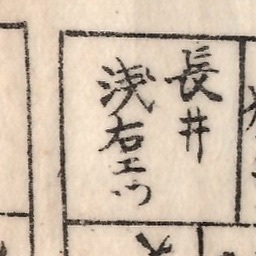 長井
浅右エ門